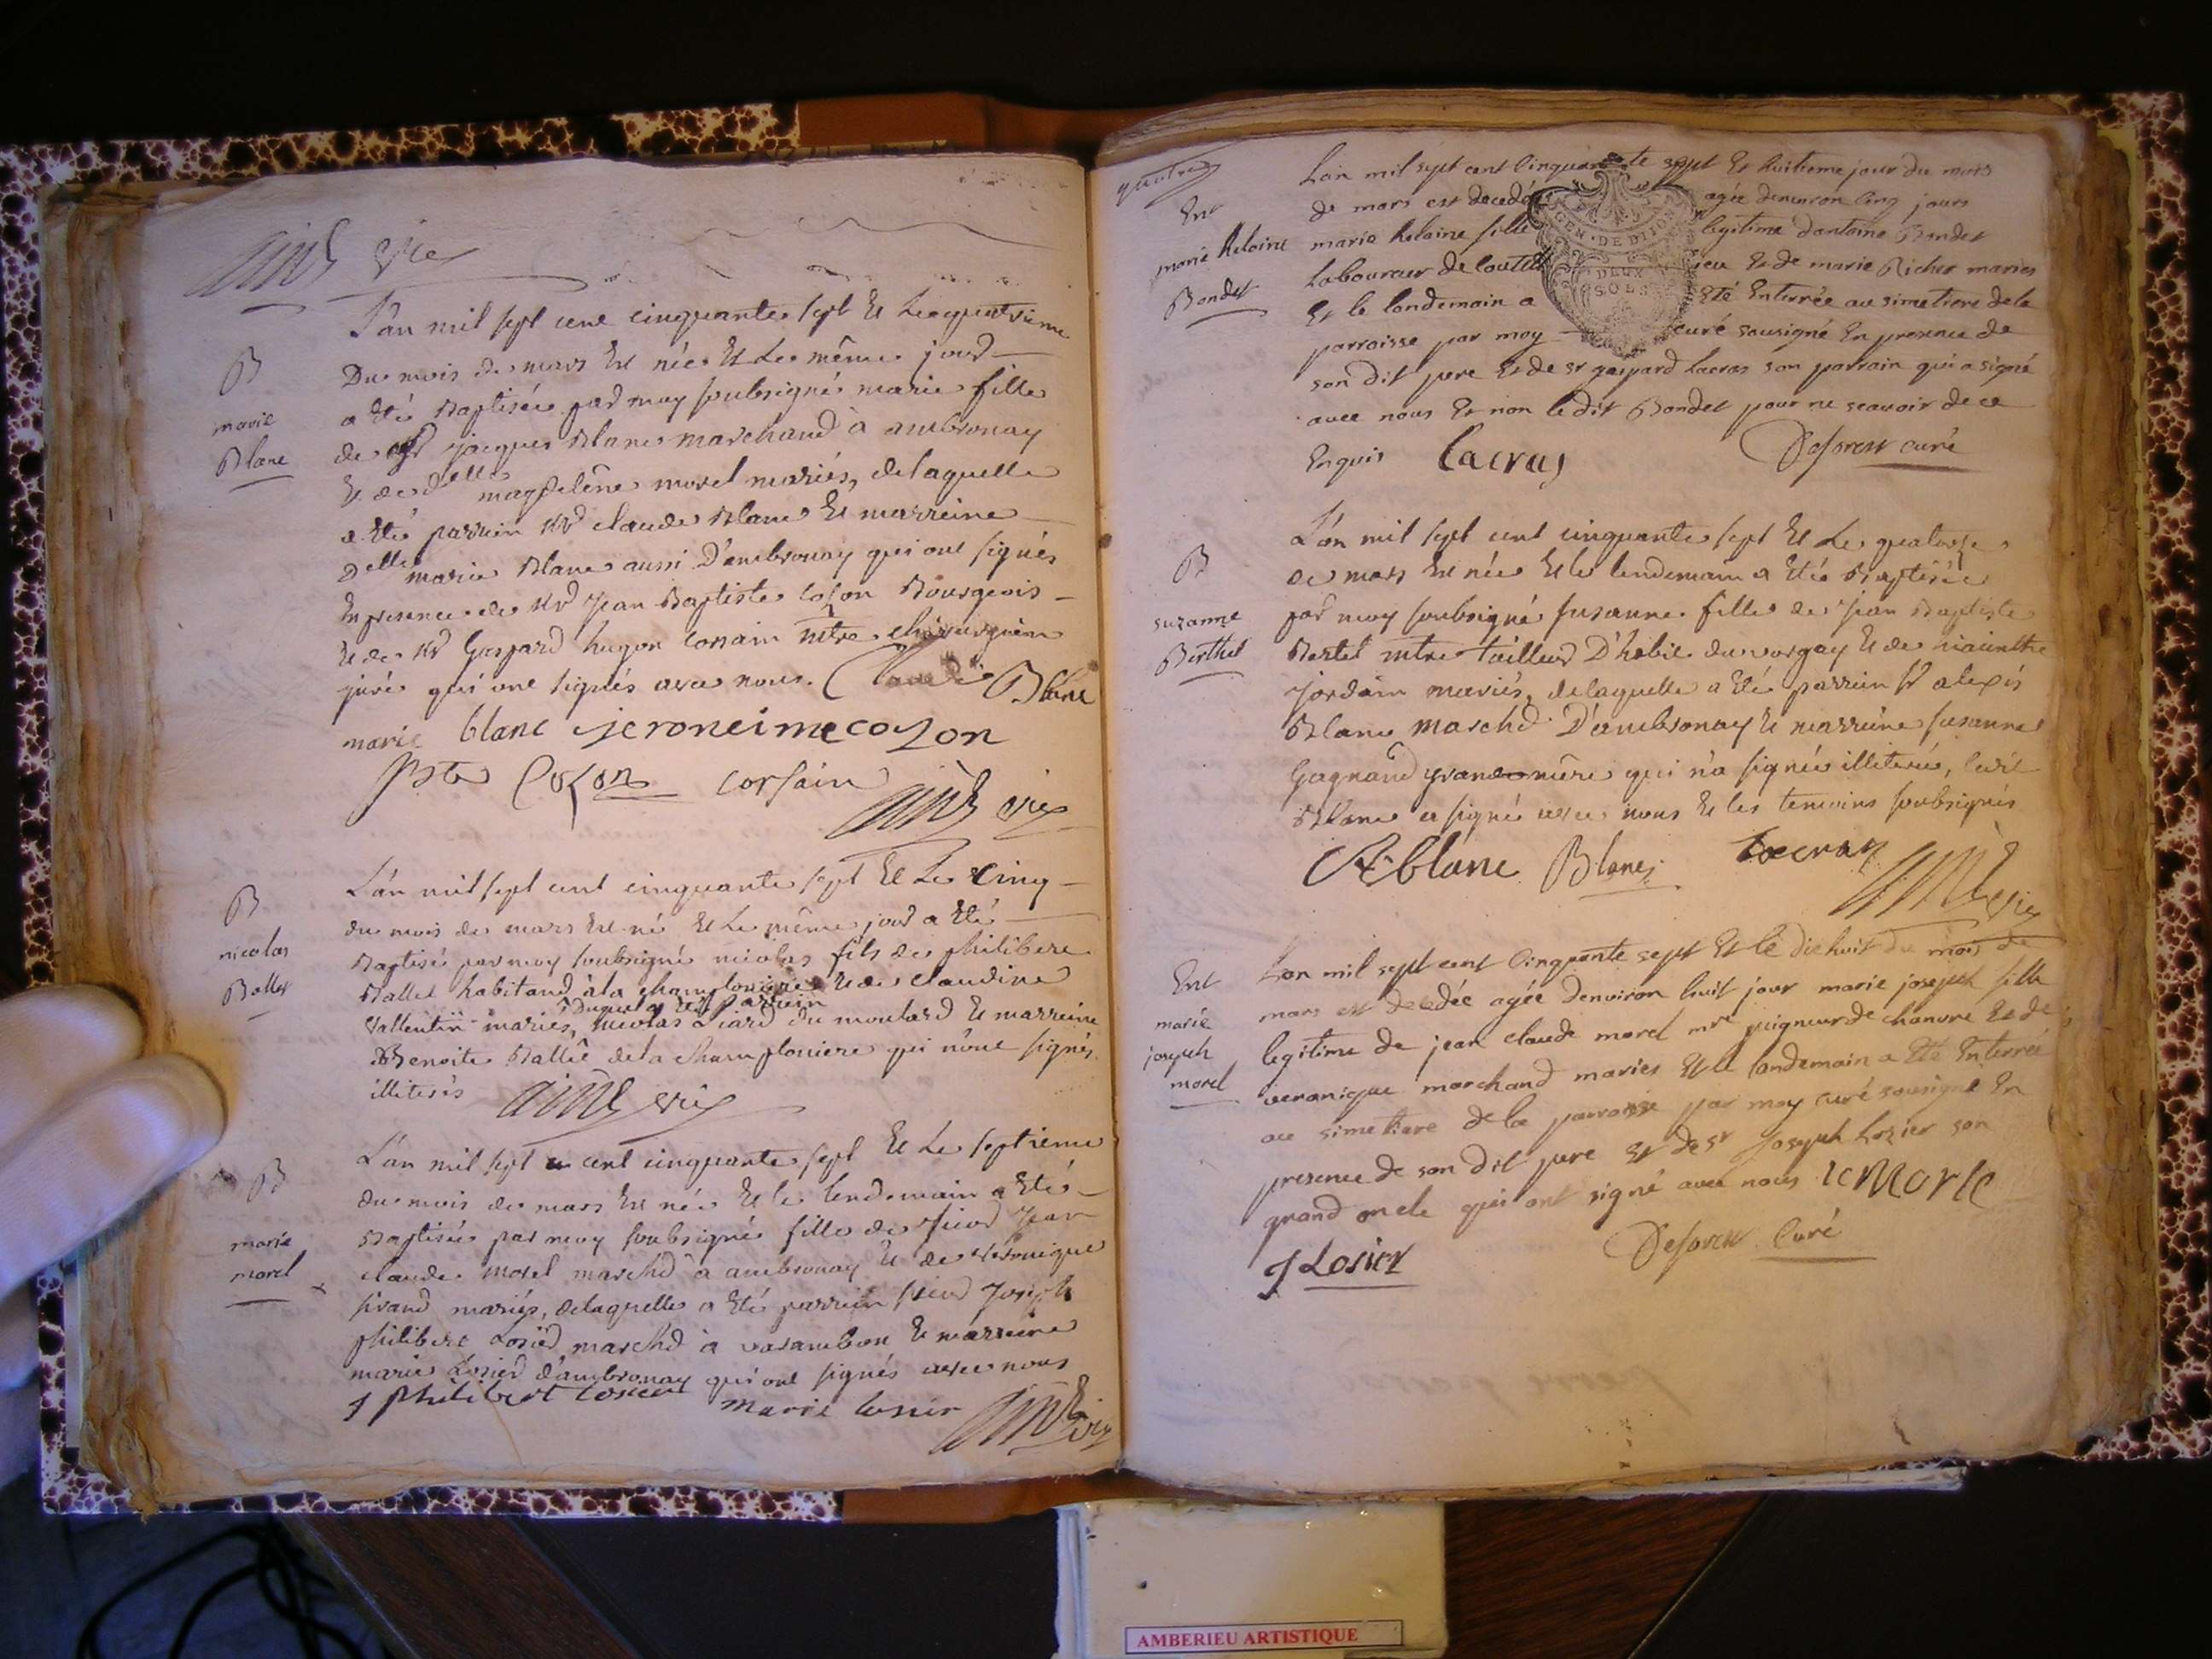 L'an mil sept cent cinquante sept et le quatrieme
B
Du mois de mars est née et le même jour
a été Baptisée par moy soubsigné marie fille
marie
Blanc
de sr jacques Blanc marchand à ambronay
et de delle magdelêne morel mariés, delaquelle
a été parrein sr claude Blanc et marreine
Delle marie Blanc aussi D'ambronay qui ont signés
En presence de sr Jean Baptiste Cozon Bourgeois
et de sr Gaspard hugon Corsain mtre chirurgien
juré qui ont signés avec nous. Claude Blanc
marie blanc jeroneime cozon
Cozon corsain
L'an mil sept cent cinquante sept et le cinq
B
du mois de mars est né et le même jour a été
nicolas
Ballet
Baptisé par moy soubsigné nicolas fils de philibert
Ballet habitand à la champloniere et de claudine
Duquel a été parrein
vallentin mariés, nicolas Liard du moulard et marreine
Benoite Ballet de la Champloniere qui n'ont signés
illiterés
L'an mil sept cent cinquante sept et le septieme
B
du mois de mars est née et le lendemain a été
Baptisée par moy soubsigné fille de sieur Jean
marie
morel
claude morel marchd à ambronay et de veronique
mariés, delaquelle a été parrein sieur Joseph
philibert Losier marchd à varambon et marreine
marie Losier d'ambronay qui ont signés avec nous
J philibert Losier marie losier
L'an mil sept cent cinquante sept et huitieme jour du mois
Ent
marie helaine
Bondet
de mars est decedée agée denviron cinq jours
marie helaine fille legitime dantoine Bondet
Laboureur de et de marie Richer mariés
et le landemain a été Enterrée au simetiere dela
GEN·DE DIJON
DEUX
SOLS
parroisse par moy curé sousigné En presence de
son dit pere et de sr gaspard Lacras son parrain qui a signé
avec nous et non le dit Bondet pour ne scavoir de ce
Enquis Lacras curé
L'an mil sept cent cinquante sept et le quatorze
B
de mars est née et le lendemain a été Baptisée
suzanne
Berthet
par moy soubsigné susanne fille de Jean Baptiste
Bertet mtre tailleur D'habit et de hiacinthe
Jordain mariés, delaquelle a été parrein sr alexis
Blanc marchd D'ambronay et marreine susanne
Gagnand grande mère qui n'a signée illiterée, ledit
Blanc a signé avec nous et les temoins soubsignés
A·blanc Blanc Lacras
L'an mil sept cent cinquante sept et le dixhuit du mois de
Ent
marie
joseph
morel
mars est decedée agée denviron huit jour marie joseph fille
legitime de jean claude morel mre peigneur de chanvre et de
veranique marchand mariés et le landemain a été Enterrée
au simetiere de la parroisse par moy curé sousigné En
presence de son dit pere et de sr Joseph Lozier son
grand oncle qui ont signé avec nous
J Losier curé
AMBERIEU ARTISTIQUE